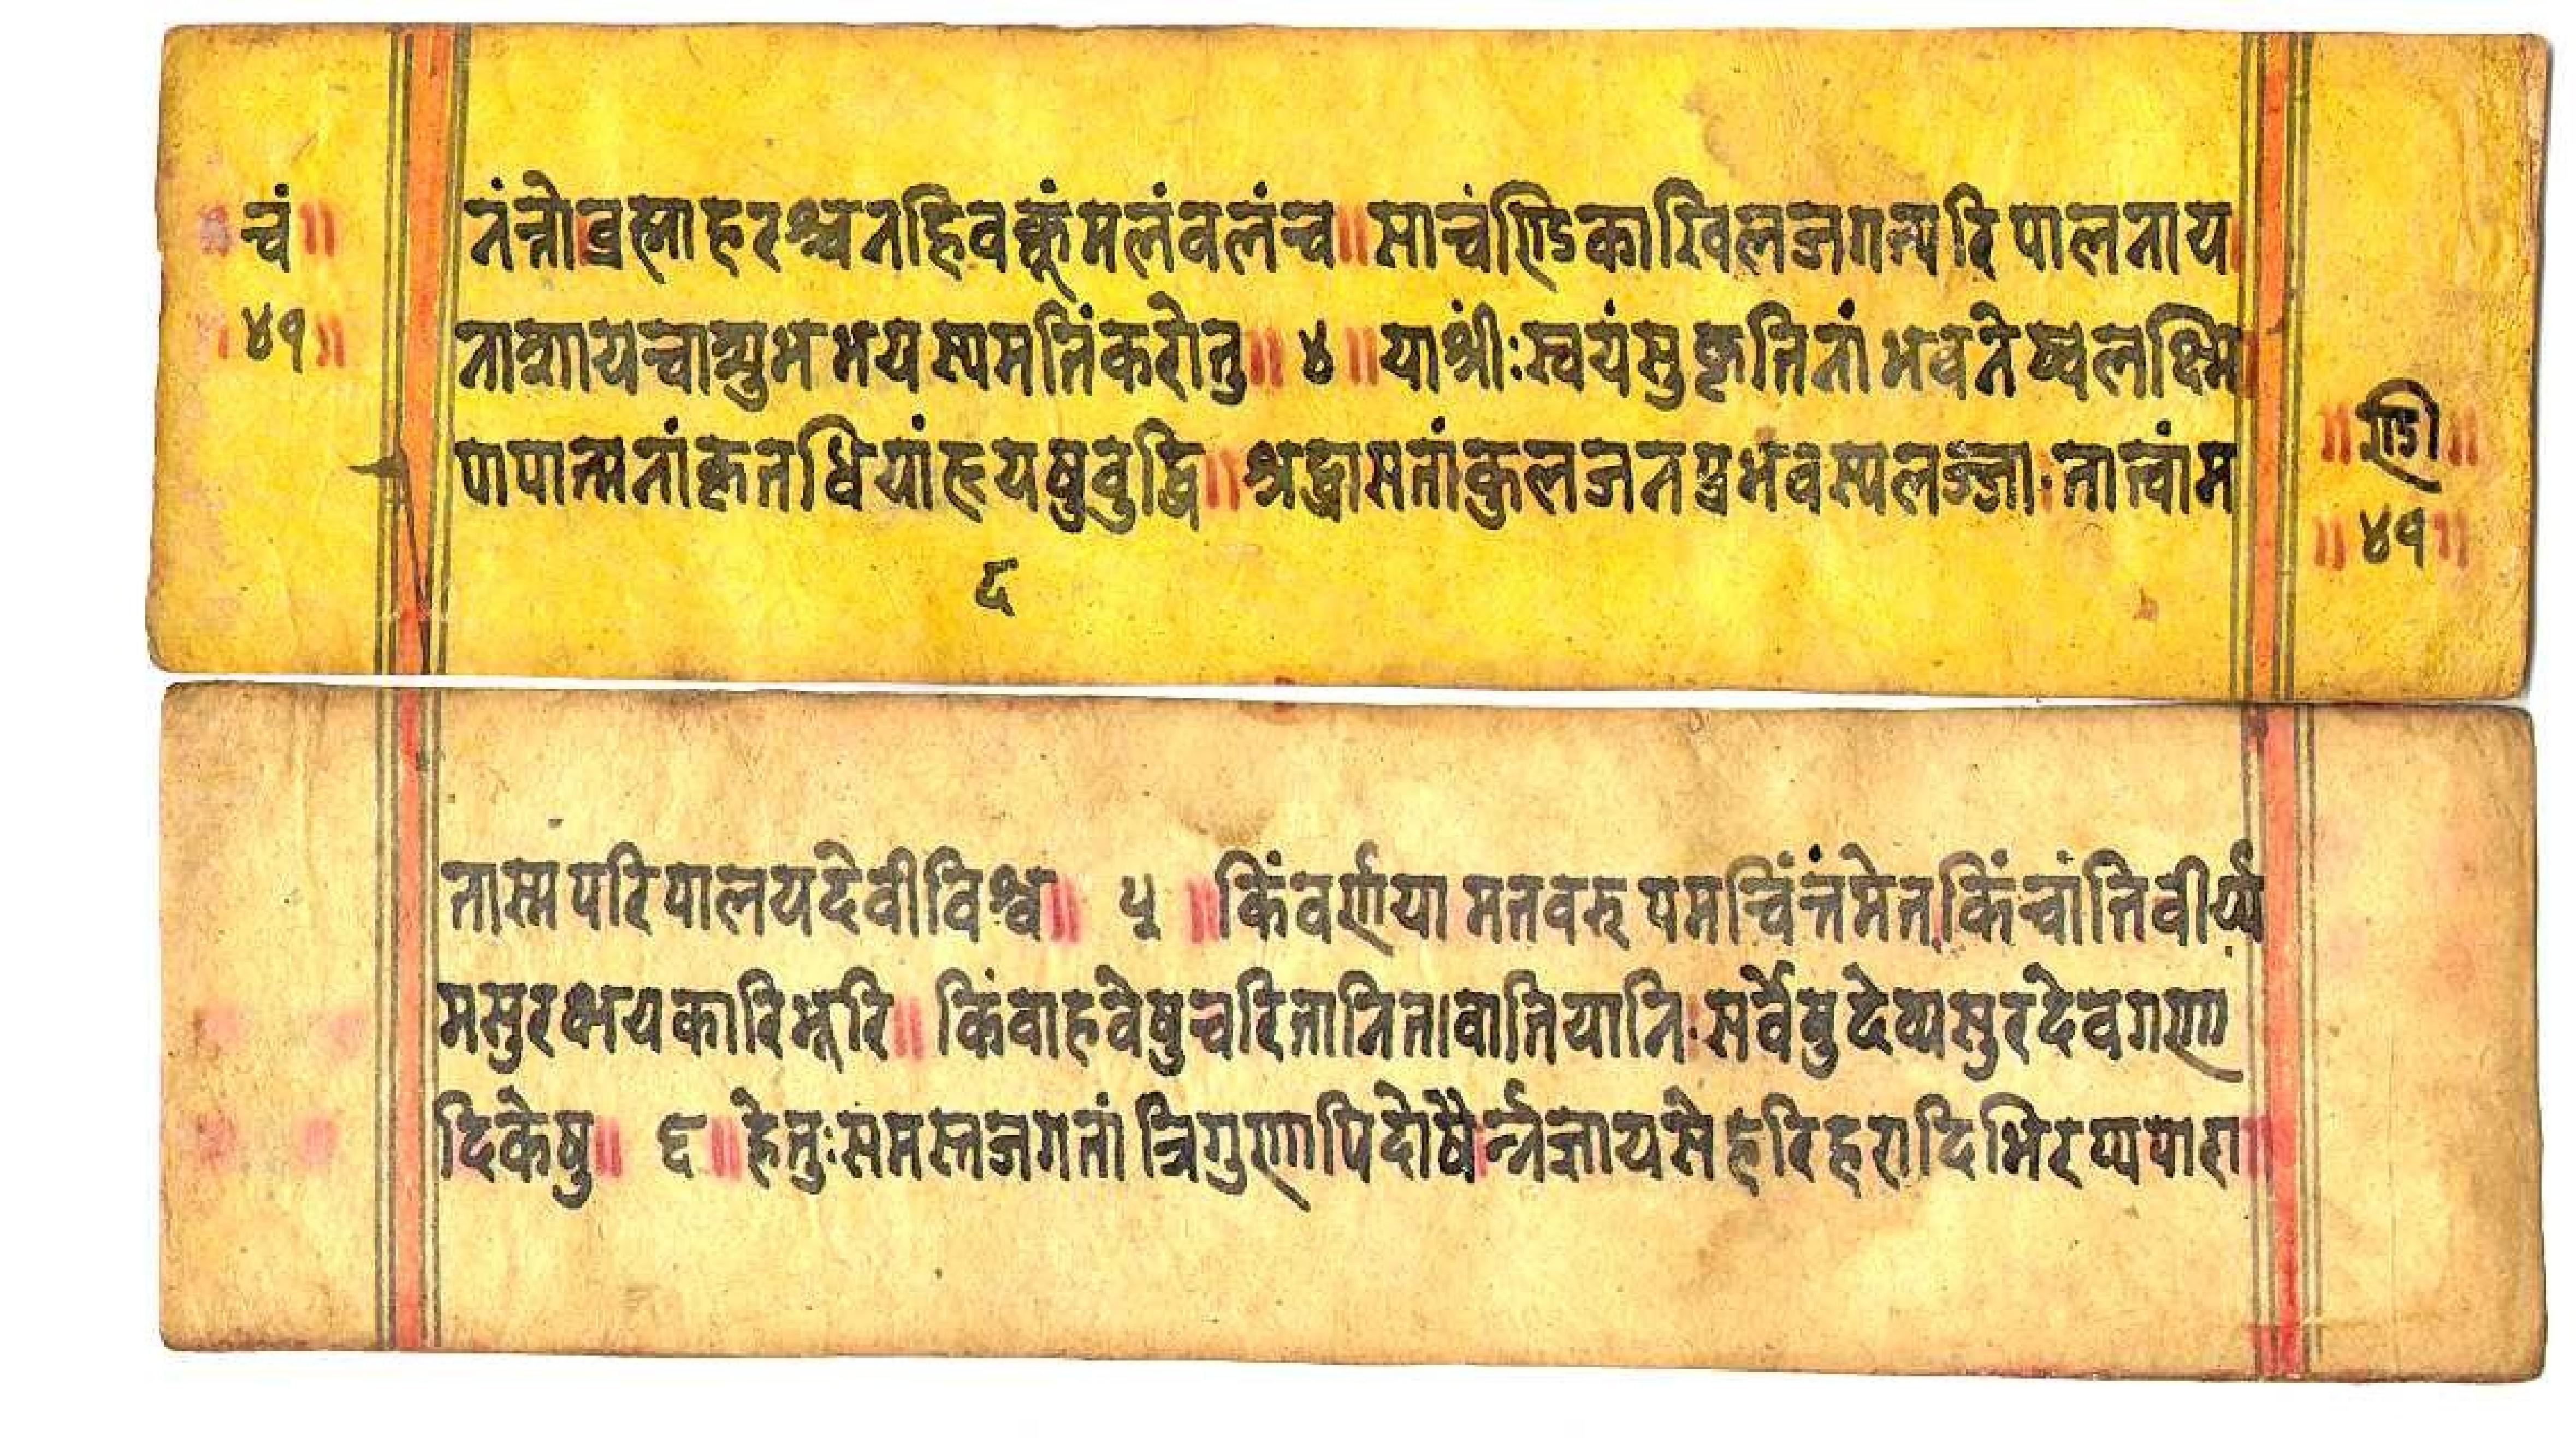 चं॥
४१॥
नंन्तोब्रह्माहरश्चनहिवक्तूंमलंवलंच॥साचंण्डिकाखिलजगत्परिपालनाय
नाशायचाशुभभयस्यमतिंकरोतु॥४॥याश्रीःस्वयंसुकृतिनांभवनेष्वलक्ष्मि
पापात्मनांकृतधियांहृयषुवुद्धि॥श्रद्धासतांकुलजनप्रभवस्यलज्जा।तात्वांम
द
॥ण्डि॥
॥४१॥
तास्मपरिपालयदेवीविश्व॥५॥किंवर्णयामतवरुपमचिंन्तमेतत्किंचांतिवीर्य्य
मसुरक्षयकारिभूरि॥किंवाहवेषुचरितानितावातियानि।सर्वेषुदेव्यसुरदेवगणा
दिकेषु॥६॥हेतुःसमस्तजगतांत्रिगुणापिदोषैर्न्नज्ञायसेहरिहरादिभिरप्यपारा॥